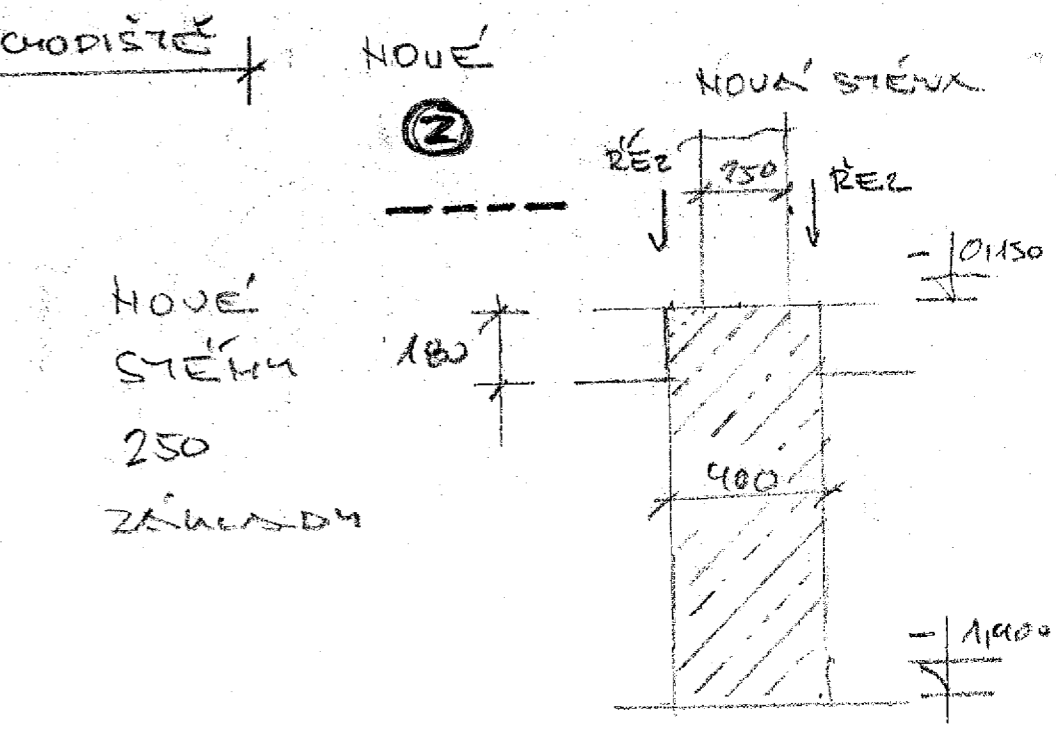 CHODIŠTĚ
NOVÉ
2
NOVÁ STĚNA
ŘEZ
250
ŘEZ
- 0,150
NOVÉ
STĚNY
250
ZÁKLADY
180
400